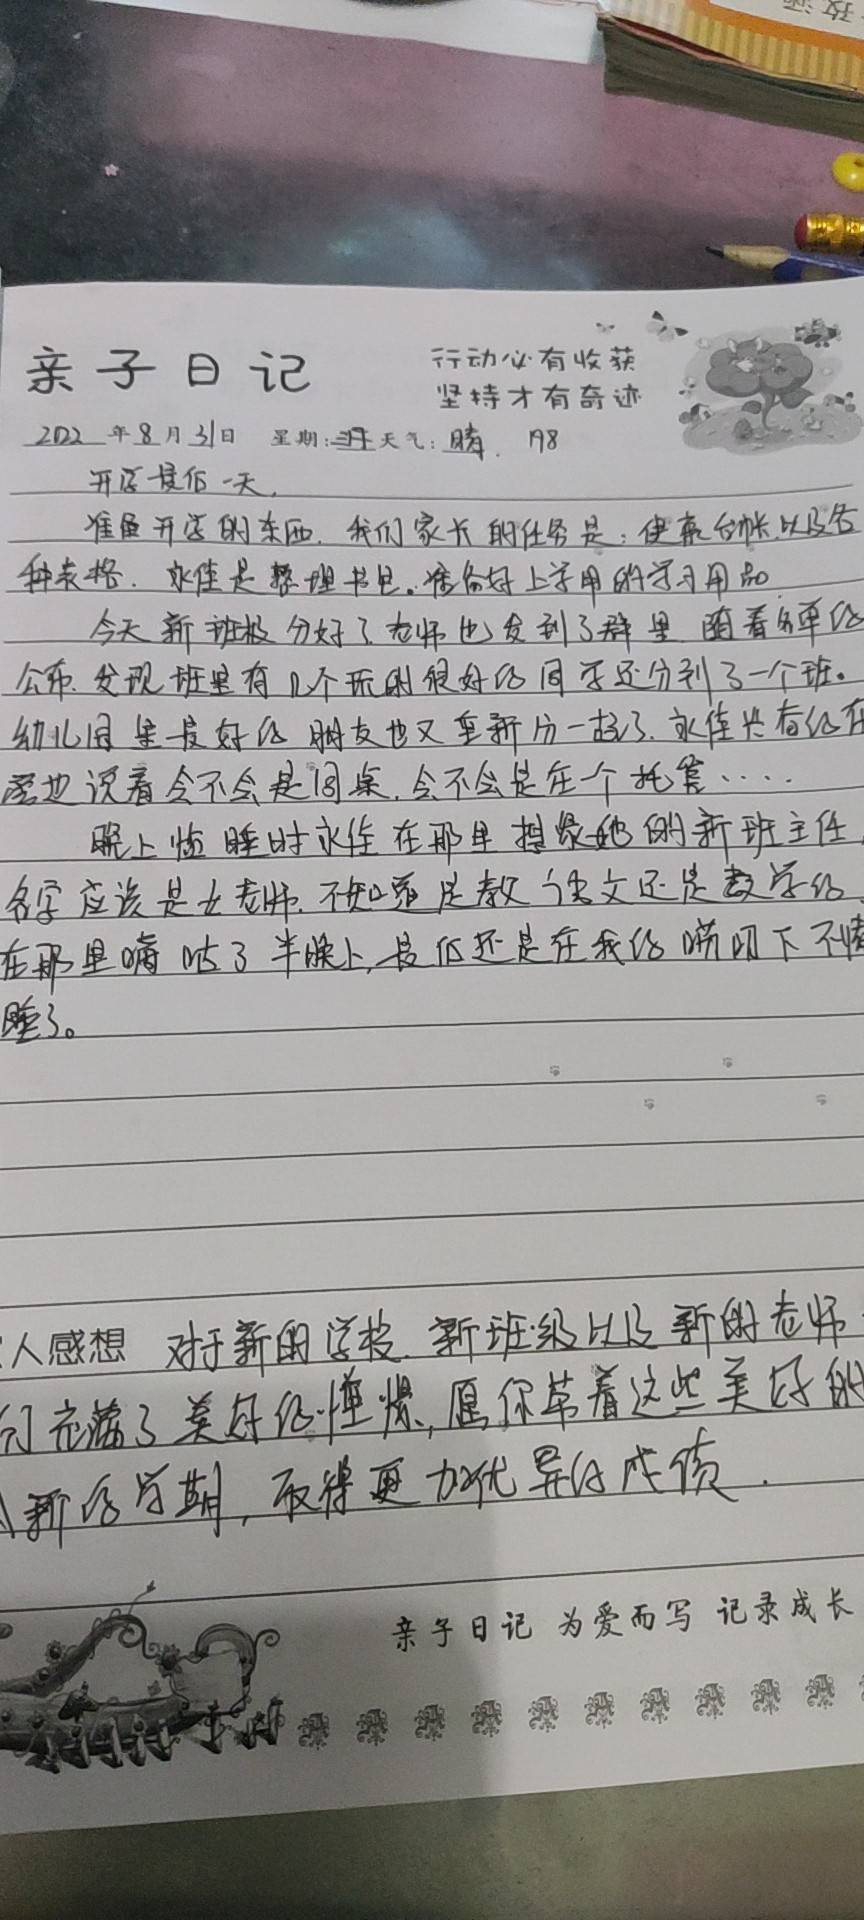 亲子日记
行动必有收获
坚持才有奇迹
2022年8月31日 星期: 天气:晴. 198
开学最后一天,
准备开学的东西. 我们家长的任务是:健康台帐.以及各
种表格. 永佳是整理书包。准备好上学用的学习用品
今天新班级分好了老师也发到了群里 随着名单的
公布.发现班里有几个玩的很好的同学还分到了一个班。
幼儿园里最好的朋友也又重新分一起了.永佳兴奋的在
那边说着会不会是同桌.会不会是在一个托管·····
晚上临睡时永佳在那里想象她的新班主任,
名字应该是女老师.不知道是教语文还是数学的
在那里嘀咕了半晚上,最后还是在我的唠叨下不情
睡了。
人感想 对于新的学校.新班级以及新的老师
们充满了美好的憧憬,愿你带着这些美好的
新的学期,取得更加优异的成绩.
亲子日记 为爱而写 记录成长